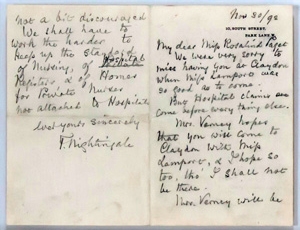 Nov 30/92
10, SOUTH STREET,
PARK LANE. W.
My dear Miss Rosalind Paget
We were very sorry to
miss having you at Claydon
when Miss Lamport was
so good as to come.
But Hospital claims are
come before every thing else.
Mrs. Verney hopes
that you will come to
Claydon with Miss
Lamport, & I hope so
too, tho' I shall not
be there.
Mrs. Verney will be
not a bit discouraged
We shall have to
work the harder to
keep up the Standard
of Nursing, of Hospital
Patients & of Homes
for Private Nurses
not attached to Hospitals
ever yours sincerely
F. Nightingale